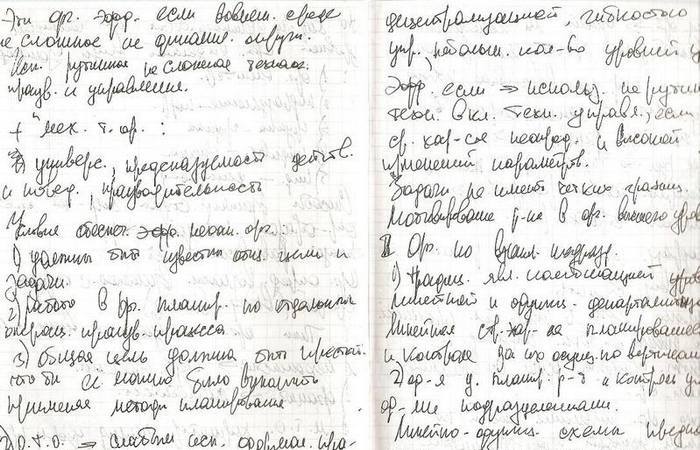 Эти ор. эфф. если во внеш. среде
не сложное не динамич. окруж.
Исп. рутинное не сложное технол.
произв. и управление.
+ "мех. т. ор. :
универс., предсказуемость действ.
и повед., производительность
Условия обеспеч. эфф. механ. орг.:
1) должны быть известны общ. цели и
задачи.
2) работа в ор. планир. по отдельным
операц. произв. процесса
3) общая цель должна быть простой.
что бы её можно было выполнить
применяя методы планирования
слабым исп. формал. пра-
децентрализацией, гибкостью
упр., небольш. кол-во уровней у
Эфф. если => использ. не рутин
техн. вкл. техн. управл., если
ср. хар-ся неопред. и высокой
изменений параметров.
Задачи не имеют четких границ.
Мотивирование р-ка в ор. высшего уров
II Ор. по взаим. подразд.
1) традиц. явл. комбинацией
линейной и функц. департаментиз
Линейная стр. хар-ся планированием
и контроля за их осущ. по вертикали
2) ор-я у. планир. р-т и контроль
подразделениями.
Линейно-функц. схема